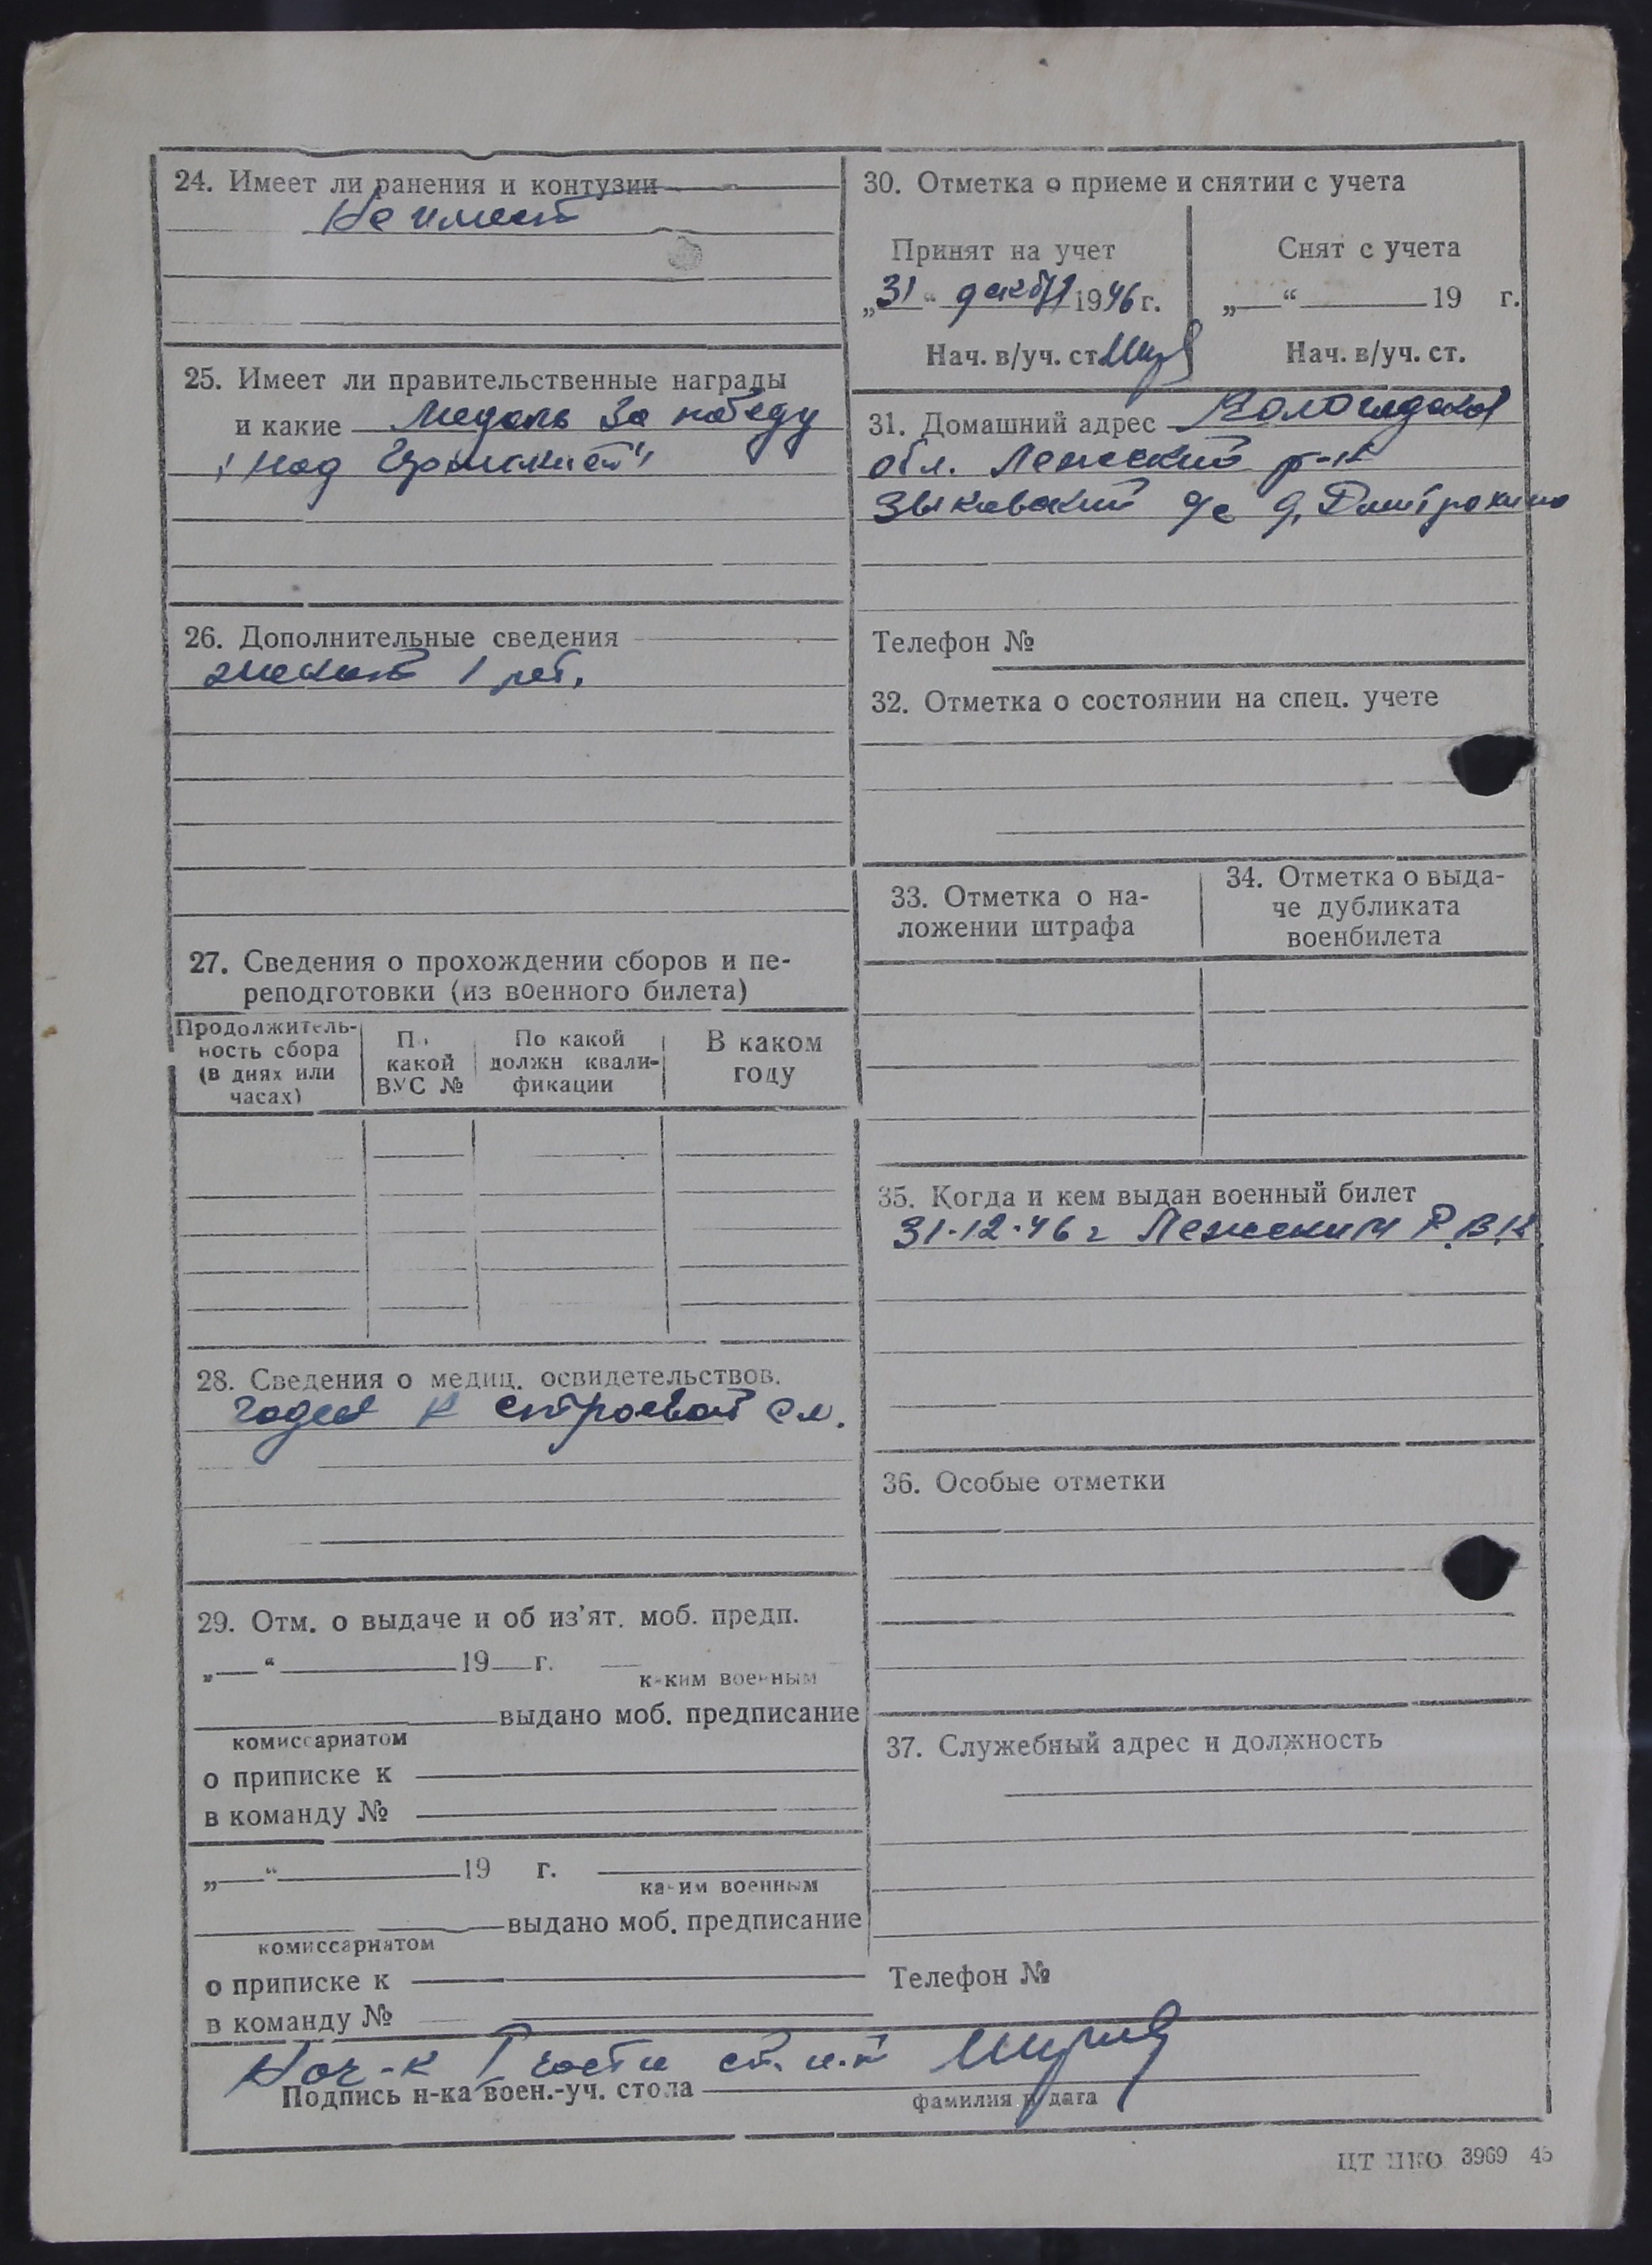 24. Имеет ли ранения и контузии
Не имеет
25. Имеет ли правительственные награды
и какие Медаль За победу
над Германией"
26. Дополнительные сведения
женат 1 реб.
27. Сведения о прохождении сборов и пе-
реподготовки (из военного билета)
Продолжитель-
ность сбора
(в днях или
часах)
По
какой
ВУС №
По какой
должн квали-
фикации
В каком
году
28. Сведения о медиц. освидетельствов.
годен к строевой сл.
29. Отм. о выдаче и об из'ят. моб. предп.
„ “ 19 г.
каким военным
выдано моб. предписание
комиссариатом
о приписке к
в команду №
„ “ 19 г.
каким военным
выдано моб. предписание
комиссариатом
о приписке к
в команду №
30. Отметка о приеме и снятии с учета
Принят на учет
„31“ декабя 1946 г.
Нач. в/уч. ст.
Снят с учета
„ “ 19 г.
Нач. в/уч. ст.
31. Домашний адрес Вологодская
обл. Лежский р-н
Зыковский с/с д. Дмитрокино
Телефон №
32. Отметка о состоянии на спец. учете
33. Отметка о на-
ложении штрафа
34. Отметка о выда-
че дубликата
военбилета
35. Когда и кем выдан военный билет
31.12.46 г Лежским Р.В.К.
36. Особые отметки
37. Служебный адрес и должность
Телефон №
Нач-к I части ст. л-т
Подпись н-ка воен.-уч. стола
фамилия и дата
ЦТ НКО 3969 45